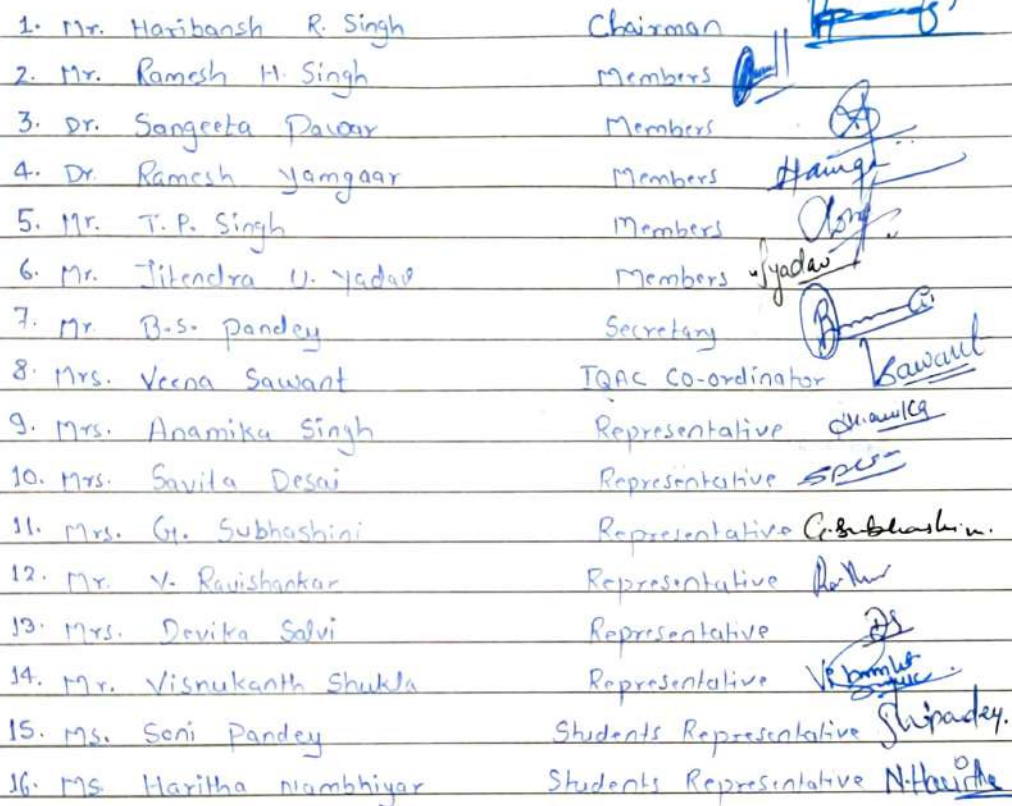 1. Mr. Haribansh R. Singh Chairman
2. Mr. Ramesh H. Singh Members
3. Dr. Sangeeta Pawar Members
4. Dr. Ramesh Yamgaar Members
5. Mr. T. P. Singh Members
6. Mr. Jitendra U. Yadav Members Jyadav
7. Mr. B.S. Pandey Secretary
8. Mrs. Veena Sawant IQAC Co-ordinator Sawant
9. Mrs. Anamika Singh Representative
10. Mrs. Savita Desai Representative
11. Mrs. G. Subhashini Representative G.Subhashini.
12. Mr. V. Ravishankar Representative
13. Mrs. Devika Salvi Representative
14. Mr. Visnukanth Shukla Representative
15. Ms. Soni Pandey Students Representative
16. Ms. Haritha Nambhiyar Students Representative N.Haritha